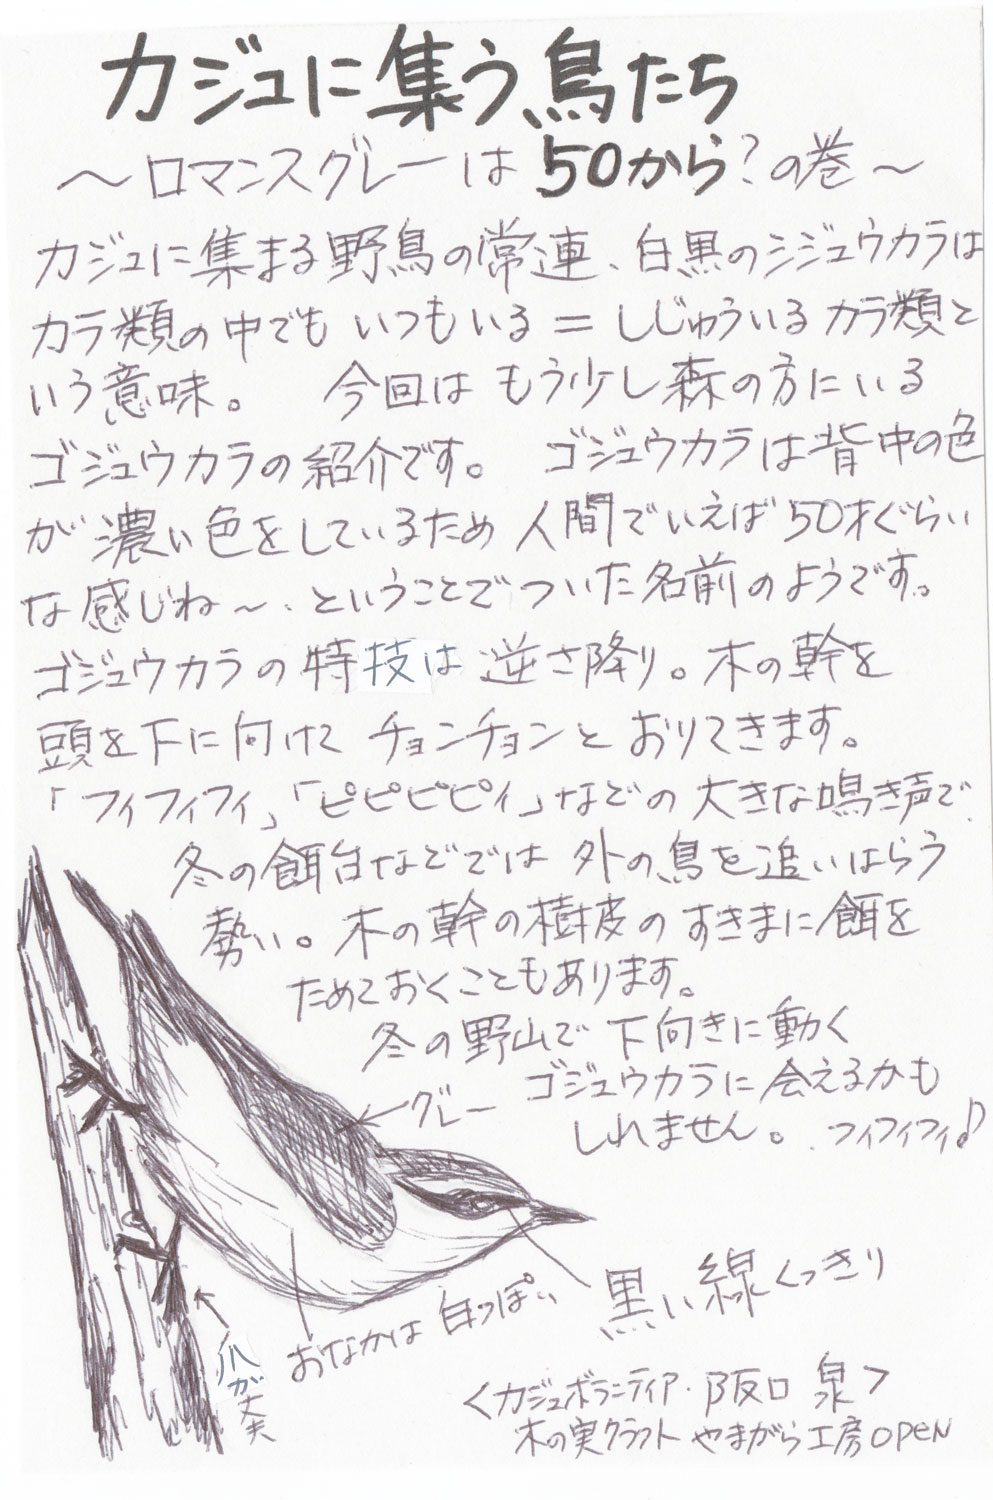 カジュに集う鳥たち
〜ロマンスグレーは50から?の巻〜
カジュに集まる野鳥の常連、白黒のシジュウカラは
カラ類の中でも いつもいる=しじゅういるカラ類と
いう意味。 今回は もう少し森の方にいる
ゴジュウカラの紹介です。 ゴジュウカラは背中の色
が濃い色をしているため 人間でいえば50才ぐらい
な感じね〜、ということでついた名前のようです。
ゴジュウカラの特技は 逆さ降り。木の幹を
頭を下に向けて チョンチョンと おりてきます。
「フィフィフィ」「ピピピピィ」などの大きな鳴き声で、
冬の餌台などでは 外の鳥を追いはらう
勢い。木の幹の樹皮のすきまに餌を
ためておくこともあります。
冬の野山で 下向きに動く
ゴジュウカラに会えるかも
しれません。フィフィフィ♪
←グレー
黒い線くっきり
おなかは白っぽい
爪が丈夫
<カジュボランティア・阪口 泉>
木の実クラフト やまがら工房OPEN